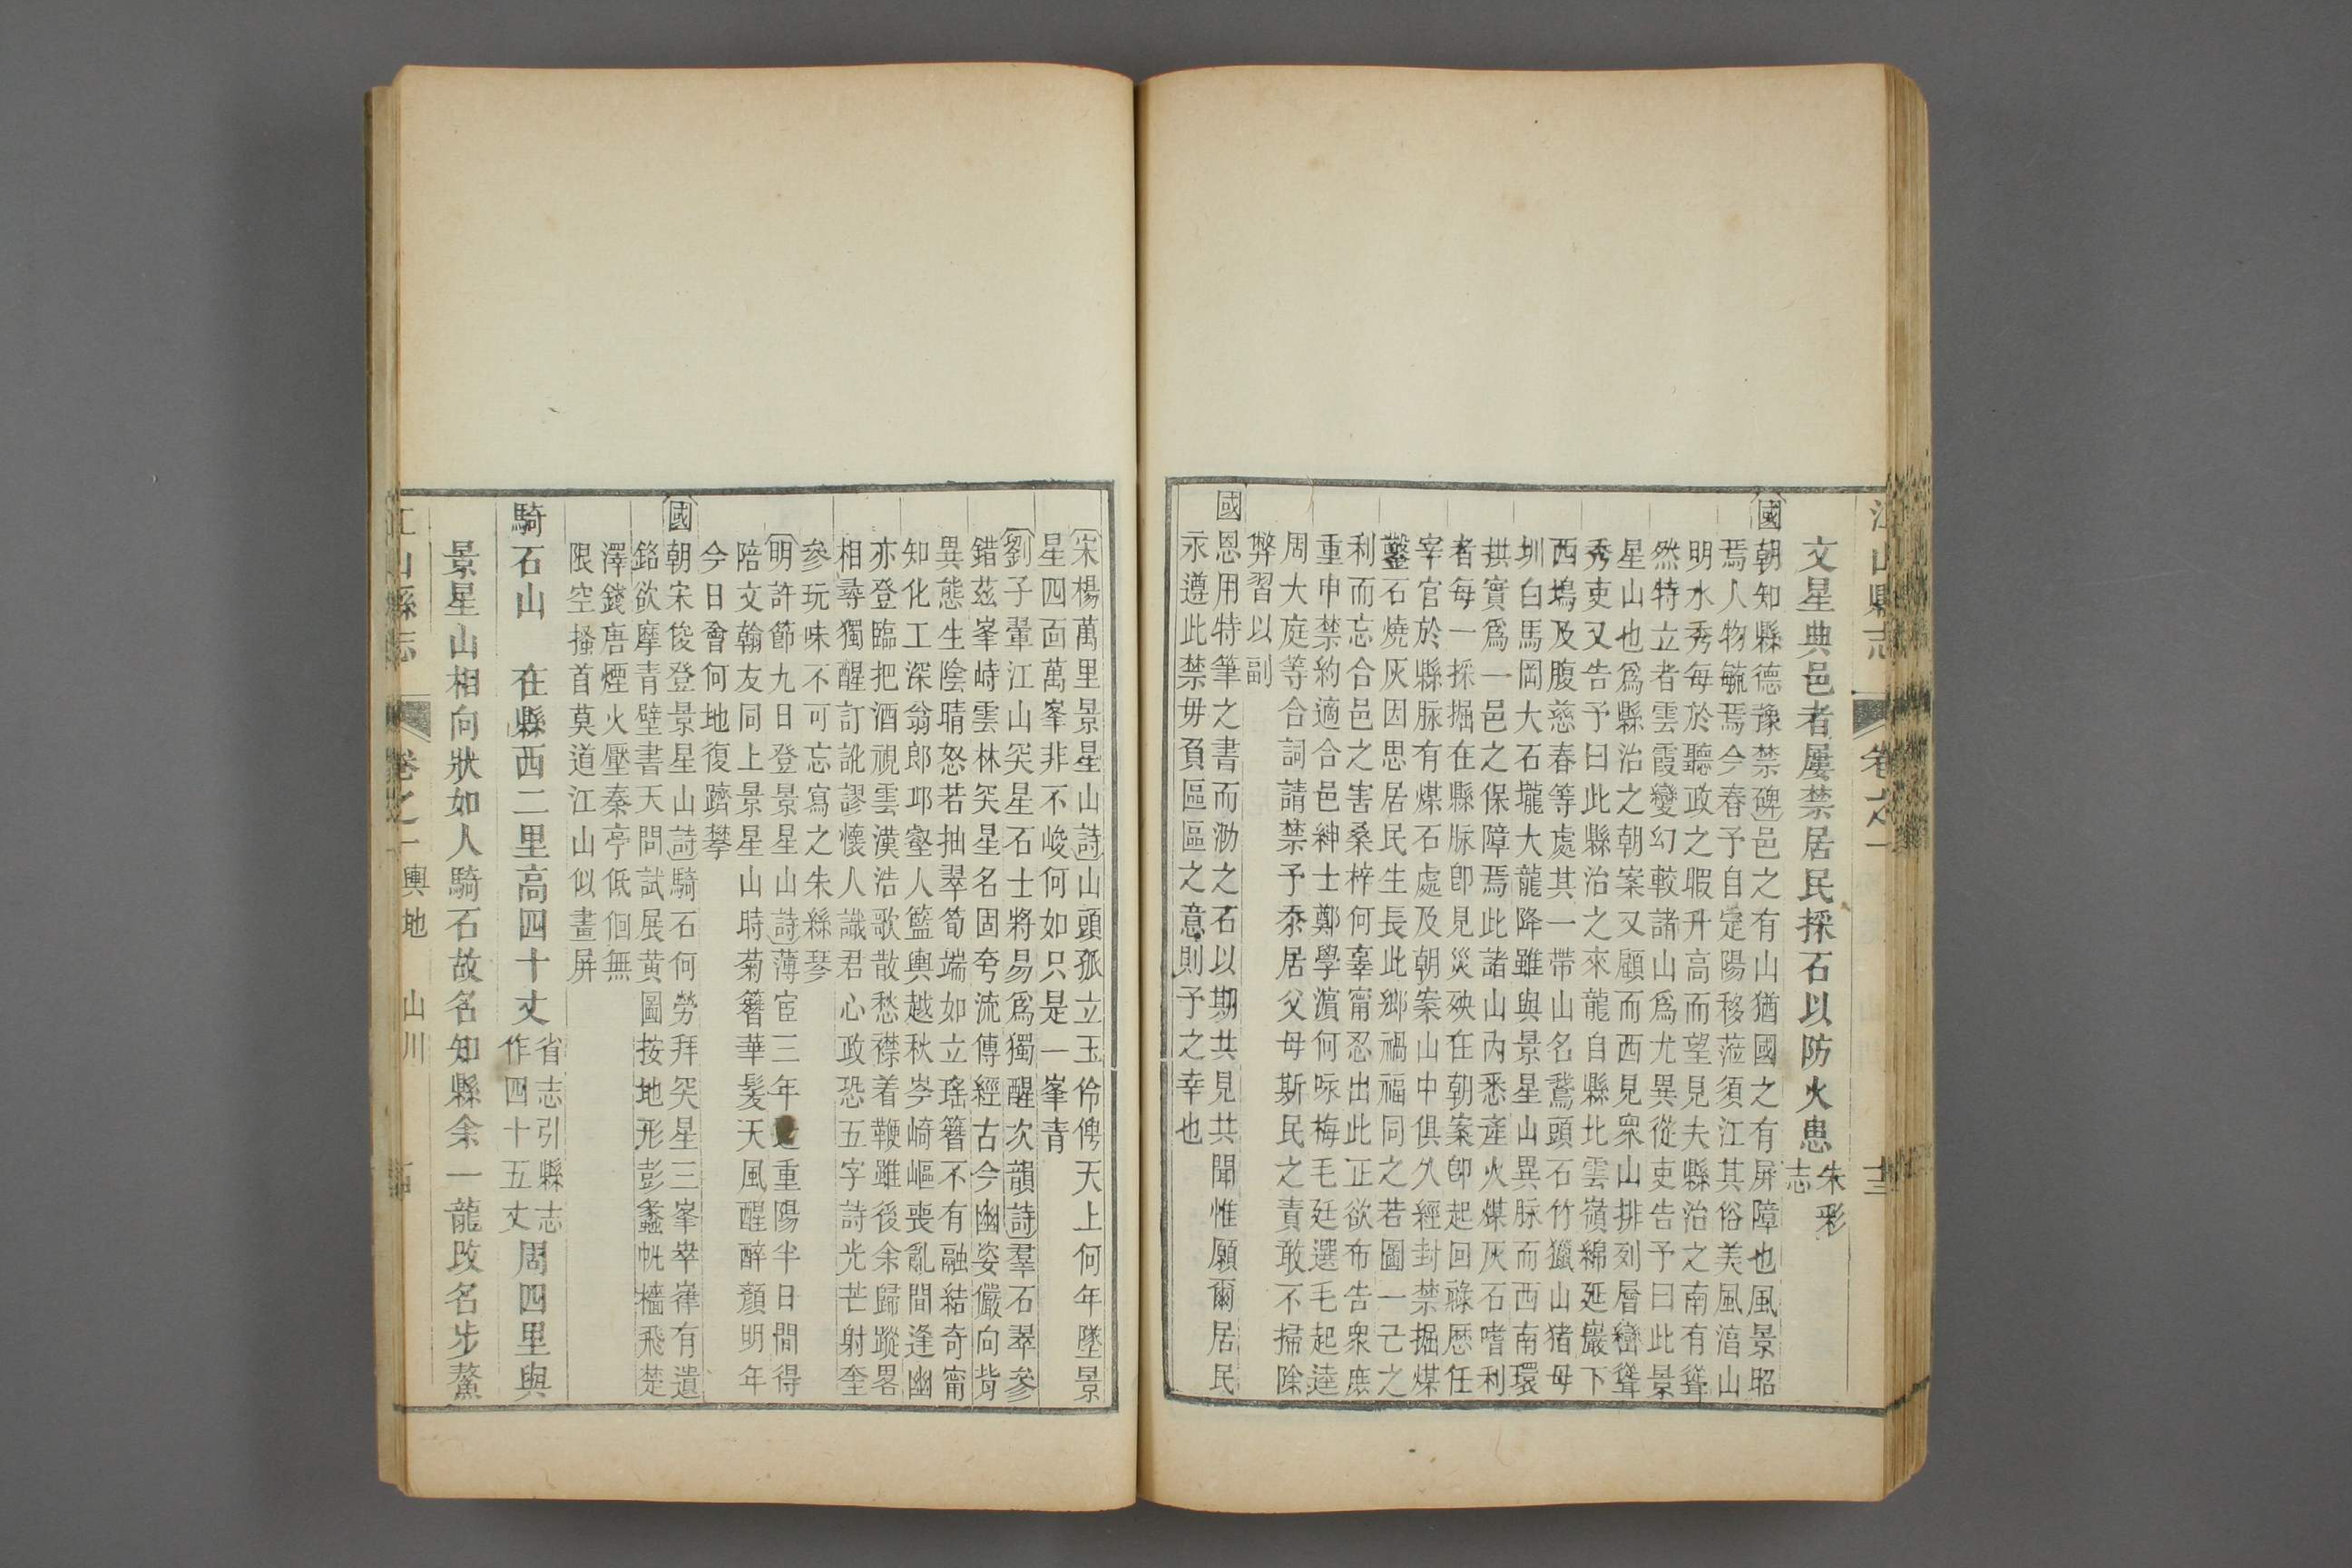 江山縣志 卷之一 十三
文星典邑者屢禁居民採石以防火患朱彩志
國朝知縣德豫禁碑邑之有山猶國之有屏障也風景昭
焉人物毓焉今春予自定陽移蒞須江其俗美風湻山
明水秀每於聽政之暇升高而望見夫縣治之南有聳
然特立者雲霞變幻較諸山爲尤異從吏告予曰此景
星山也爲縣治之朝案又顧而西見衆山排列層巒聳
秀吏又告予曰此縣治之來龍自縣北雲嶺綿延巖下
西塢及腹慈春等處其一帶山名鵞頭石竹獵山猪母
圳白馬岡大石壠大龍降雖與景星山異脉而西南環
拱實爲一邑之保障焉此諸山內悉產火煤灰石嗜利
者每一採掘在縣脉卽見災殃在朝案卽起回祿歷任
宰官於縣脉有煤石處及朝案山中俱久經封禁掘煤
鑿石燒灰因思居民生長此鄉禍福同之若圖一己之
利而忘合邑之害桑梓何辜甯忍出此正欲布告衆庶
重申禁約適合邑紳士鄭學濵何咏梅毛廷選毛起逵
周大庭等合詞請禁予忝居父母斯民之責敢不掃除
弊習以副
國恩用特筆之書而泐之石以期共見共聞惟願爾居民
永遵此禁毋負區區之意則予之幸也
宋楊萬里景星山詩山頭孤立玉伶俜天上何年墜景
星四面萬峯非不峻何如只是一峯青
劉子翬江山突星石士將易爲獨醒次韻詩羣石翠參
錯茲峯峙雲林突星名固夸流傳經古今幽姿儼向背
異態生陰晴怒若抽翠筍端如立瑤簪不有融結奇甯
知化工深翁郎邛壑人籃輿越秋岑崎嶇喪亂間逢幽
亦登臨把酒視雲漢浩歌散愁襟着鞭雖後余歸蹤畧
相尋獨醒訂訛謬懷人識君心政恐五字詩光芒射奎
參玩味不可忘寫之朱絲琴
明許節九日登景星山詩薄宦三年重陽半日間得
陪文翰友同上景星山時菊簪華髮天風醒醉顏明年
今日會何地復躋攀
國朝宋俊登景星山詩騎石何勞拜突星三峯崒嵂有遺
銘欲摩青壁書天問試展黄圖按地形彭蠡帆檣飛楚
澤錢唐煙火壓秦亭低佪無
限空搔首莫道江山似畫屏
騎石山 在縣西二里高四十丈省志引縣志作四十五丈周四里與
景星山相向狀如人騎石故名知縣余一龍改名步鰲
江山縣志 卷之一 輿地 山川